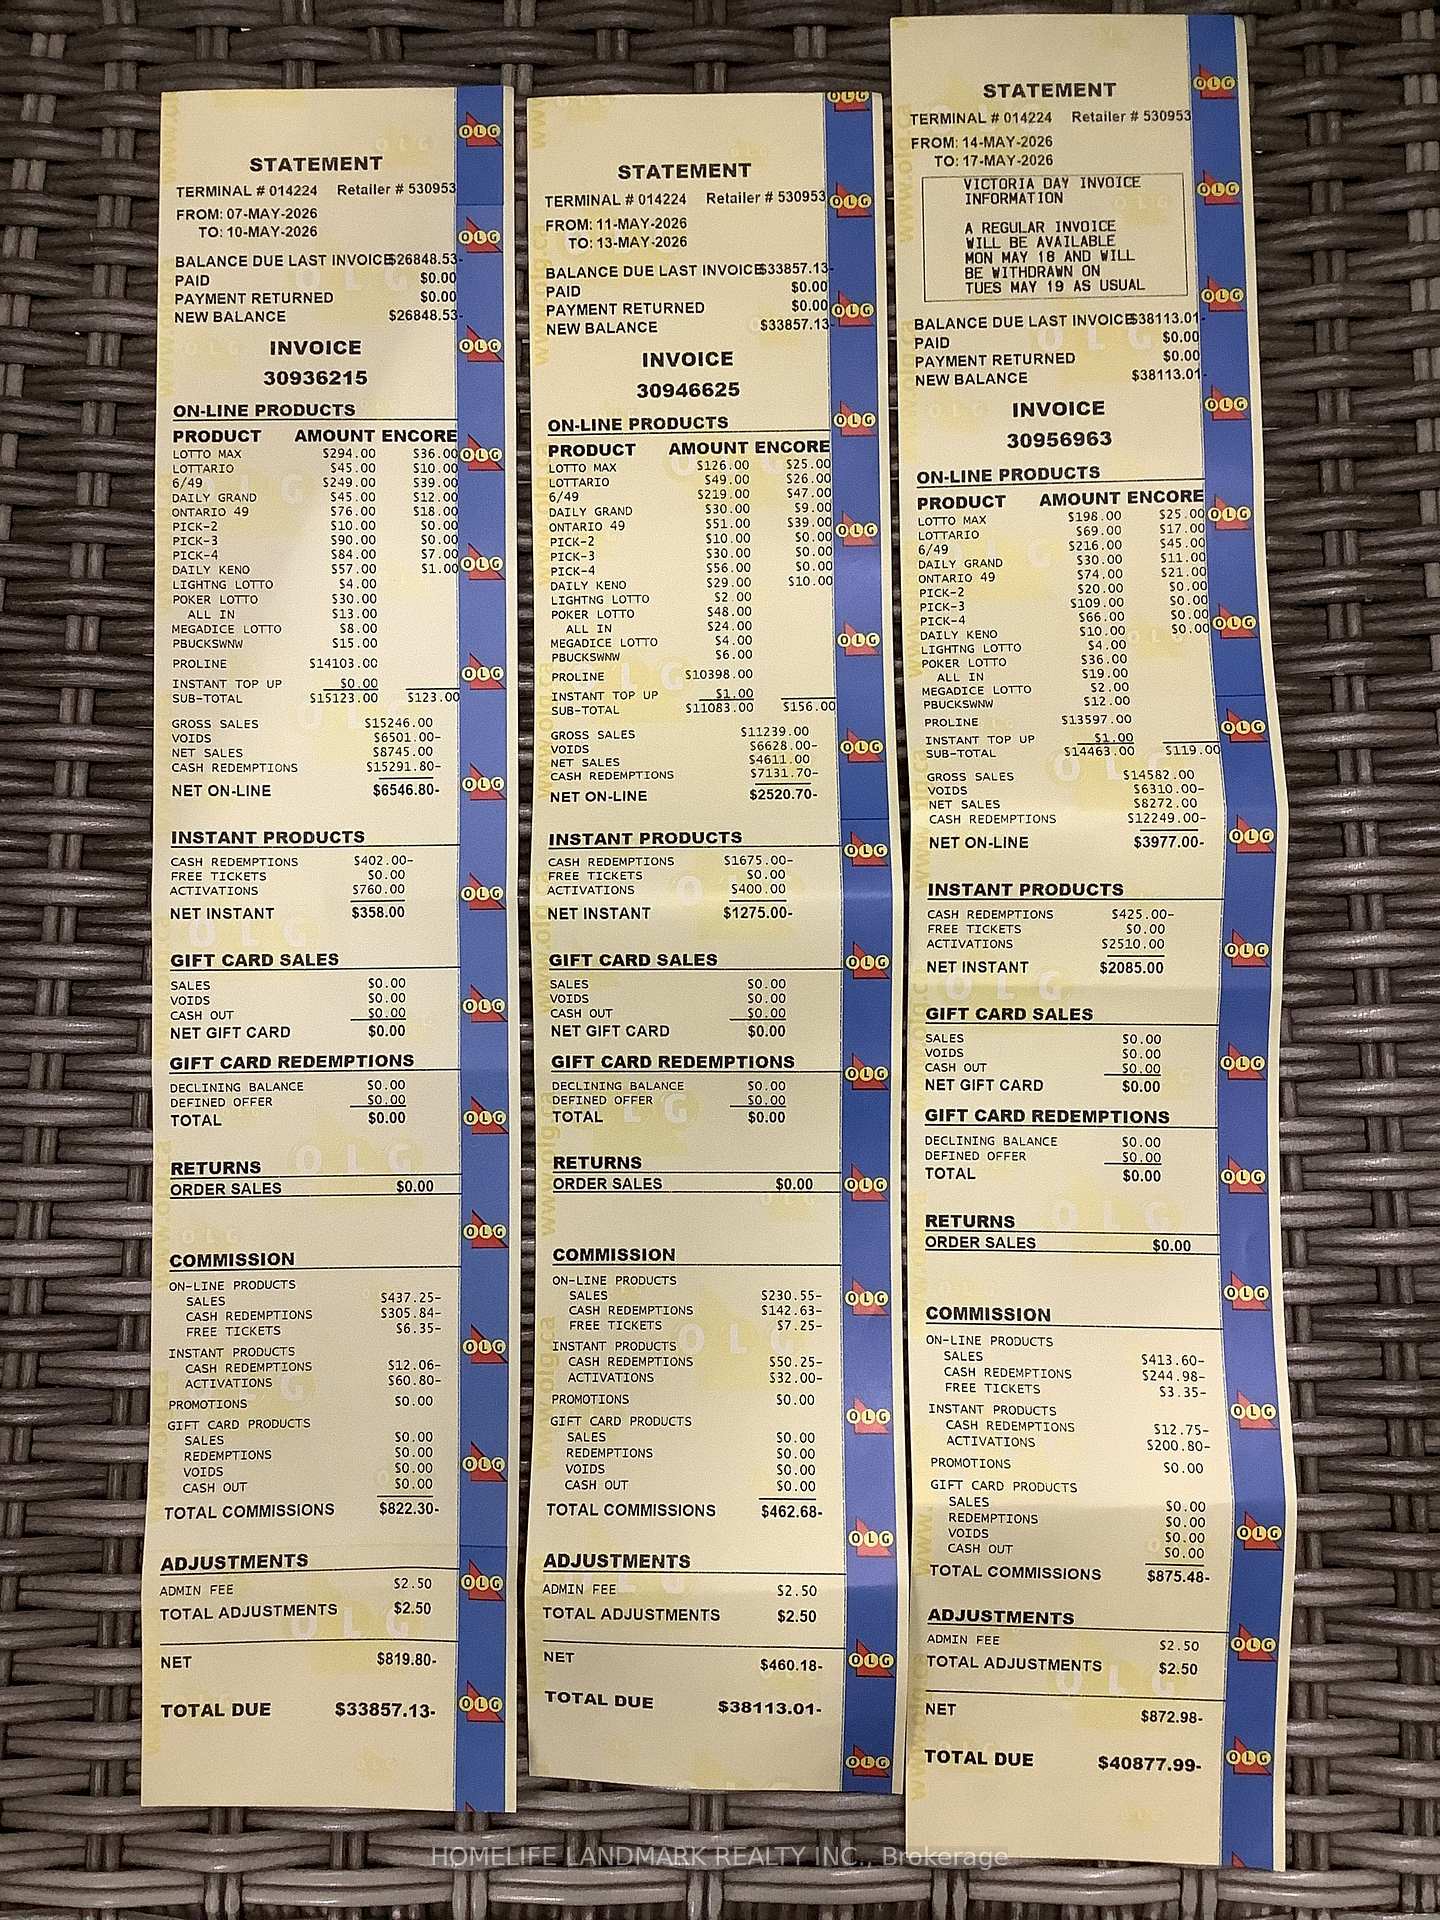 STATEMENT
TERMINAL # 014224 Retailer # 530953
FROM: 07-MAY-2026
TO: 10-MAY-2026
BALANCE DUE LAST INVOICE $26848.53-
PAID $0.00
PAYMENT RETURNED $0.00
NEW BALANCE $26848.53-
INVOICE
30936215
ON-LINE PRODUCTS
PRODUCT AMOUNT ENCORE
LOTTO MAX $294.00 $36.00
LOTTARIO $45.00 $10.00
6/49 $249.00 $39.00
DAILY GRAND $45.00 $12.00
ONTARIO 49 $76.00 $18.00
PICK-2 $10.00 $0.00
PICK-3 $90.00 $0.00
PICK-4 $84.00 $7.00
DAILY KENO $57.00 $1.00
LIGHTNG LOTTO $4.00
POKER LOTTO $30.00
ALL IN $13.00
MEGADICE LOTTO $8.00
PBUCKSWNW $15.00
PROLINE $14103.00
INSTANT TOP UP $0.00
SUB-TOTAL $15123.00 $123.00
GROSS SALES $15246.00
VOIDS $6501.00-
NET SALES $8745.00
CASH REDEMPTIONS $15291.80-
NET ON-LINE $6546.80-
INSTANT PRODUCTS
CASH REDEMPTIONS $402.00-
FREE TICKETS $0.00
ACTIVATIONS $760.00
NET INSTANT $358.00
GIFT CARD SALES
SALES $0.00
VOIDS $0.00
CASH OUT $0.00
NET GIFT CARD $0.00
GIFT CARD REDEMPTIONS
DECLINING BALANCE $0.00
DEFINED OFFER $0.00
TOTAL $0.00
RETURNS
ORDER SALES $0.00
COMMISSION
ON-LINE PRODUCTS
SALES $437.25-
CASH REDEMPTIONS $305.84-
FREE TICKETS $6.35-
INSTANT PRODUCTS
CASH REDEMPTIONS $12.06-
ACTIVATIONS $60.80-
PROMOTIONS $0.00
GIFT CARD PRODUCTS
SALES $0.00
REDEMPTIONS $0.00
VOIDS $0.00
CASH OUT $0.00
TOTAL COMMISSIONS $822.30-
ADJUSTMENTS
ADMIN FEE $2.50
TOTAL ADJUSTMENTS $2.50
NET $819.80-
TOTAL DUE $33857.13-
STATEMENT
TERMINAL # 014224 Retailer # 530953
FROM: 11-MAY-2026
TO: 13-MAY-2026
BALANCE DUE LAST INVOICE $33857.13-
PAID $0.00
PAYMENT RETURNED $0.00
NEW BALANCE $33857.13-
INVOICE
30946625
ON-LINE PRODUCTS
PRODUCT AMOUNT ENCORE
LOTTO MAX $126.00 $25.00
LOTTARIO $49.00 $26.00
6/49 $219.00 $47.00
DAILY GRAND $30.00 $9.00
ONTARIO 49 $51.00 $39.00
PICK-2 $10.00 $0.00
PICK-3 $30.00 $0.00
PICK-4 $56.00 $0.00
DAILY KENO $29.00 $10.00
LIGHTNG LOTTO $2.00
POKER LOTTO $48.00
ALL IN $24.00
MEGADICE LOTTO $4.00
PBUCKSWNW $6.00
PROLINE $10398.00
INSTANT TOP UP $1.00
SUB-TOTAL $11083.00 $156.00
GROSS SALES $11239.00
VOIDS $6628.00-
NET SALES $4611.00
CASH REDEMPTIONS $7131.70-
NET ON-LINE $2520.70-
INSTANT PRODUCTS
CASH REDEMPTIONS $1675.00-
FREE TICKETS $0.00
ACTIVATIONS $400.00
NET INSTANT $1275.00-
GIFT CARD SALES
SALES $0.00
VOIDS $0.00
CASH OUT $0.00
NET GIFT CARD $0.00
GIFT CARD REDEMPTIONS
DECLINING BALANCE $0.00
DEFINED OFFER $0.00
TOTAL $0.00
RETURNS
ORDER SALES $0.00
COMMISSION
ON-LINE PRODUCTS
SALES $230.55-
CASH REDEMPTIONS $142.63-
FREE TICKETS $7.25-
INSTANT PRODUCTS
CASH REDEMPTIONS $50.25-
ACTIVATIONS $32.00-
PROMOTIONS $0.00
GIFT CARD PRODUCTS
SALES $0.00
REDEMPTIONS $0.00
VOIDS $0.00
CASH OUT $0.00
TOTAL COMMISSIONS $462.68-
ADJUSTMENTS
ADMIN FEE $2.50
TOTAL ADJUSTMENTS $2.50
NET $460.18-
TOTAL DUE $38113.01-
STATEMENT
TERMINAL # 014224 Retailer # 530953
FROM: 14-MAY-2026
TO: 17-MAY-2026
VICTORIA DAY INVOICE
INFORMATION
A REGULAR INVOICE
WILL BE AVAILABLE
MON MAY 18 AND WILL
BE WITHDRAWN ON
TUES MAY 19 AS USUAL
BALANCE DUE LAST INVOICE $38113.01-
PAID $0.00
PAYMENT RETURNED $0.00
NEW BALANCE $38113.01-
INVOICE
30956963
ON-LINE PRODUCTS
PRODUCT AMOUNT ENCORE
LOTTO MAX $198.00 $25.00
LOTTARIO $69.00 $17.00
6/49 $216.00 $45.00
DAILY GRAND $30.00 $11.00
ONTARIO 49 $74.00 $21.00
PICK-2 $20.00 $0.00
PICK-3 $109.00 $0.00
PICK-4 $66.00 $0.00
DAILY KENO $10.00 $0.00
LIGHTNG LOTTO $4.00
POKER LOTTO $36.00
ALL IN $19.00
MEGADICE LOTTO $2.00
PBUCKSWNW $12.00
PROLINE $13597.00
INSTANT TOP UP $1.00
SUB-TOTAL $14463.00 $119.00
GROSS SALES $14582.00
VOIDS $6310.00-
NET SALES $8272.00
CASH REDEMPTIONS $12249.00-
NET ON-LINE $3977.00-
INSTANT PRODUCTS
CASH REDEMPTIONS $425.00-
FREE TICKETS $0.00
ACTIVATIONS $2510.00
NET INSTANT $2085.00
GIFT CARD SALES
SALES $0.00
VOIDS $0.00
CASH OUT $0.00
NET GIFT CARD $0.00
GIFT CARD REDEMPTIONS
DECLINING BALANCE $0.00
DEFINED OFFER $0.00
TOTAL $0.00
RETURNS
ORDER SALES $0.00
COMMISSION
ON-LINE PRODUCTS
SALES $413.60-
CASH REDEMPTIONS $244.98-
FREE TICKETS $3.35-
INSTANT PRODUCTS
CASH REDEMPTIONS $12.75-
ACTIVATIONS $200.80-
PROMOTIONS $0.00
GIFT CARD PRODUCTS
SALES $0.00
REDEMPTIONS $0.00
VOIDS $0.00
CASH OUT $0.00
TOTAL COMMISSIONS $875.48-
ADJUSTMENTS
ADMIN FEE $2.50
TOTAL ADJUSTMENTS $2.50
NET $872.98-
TOTAL DUE $40877.99-
OLG
HOMELIFE LANDMARK REALTY INC., Brokerage